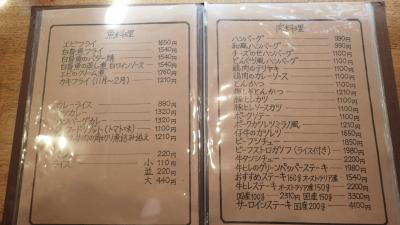 魚料理
エビフライ 1650円
白身魚フライ 1540円
白身魚のバター焼 1540円
白身魚の蒸し煮 白ワインソース 1540円
エビのクリーム煮 1760円
カキフライ(11月〜2月) 1210円
カレーライス 880円
カツカレー 1320円
ハンバーグカレー 1320円
(トマト味) 1100円
1210円
220円
ライス 小 110円
並 220円
大 440円
肉料理
ハンバーグ 990円
和風ハンバーグ 990円
チーズのせハンバーグ 1100円
ハンバーグ 1100円
鶏肉のテリヤキ 1100円
鶏肉のカレーソース 1100円
とんかつ 1100円
とんかつ 1210円
豚ヒレカツ 1100円
豚ヒレソースカツ 1100円
ポークソテー 1100円
ポークカツレツミラノ風 1210円
仔牛のカツレツ 1650円
ビーフシチュー 1850円
ビーフストロガノフ(ライス付き) 1980円
牛タンシチュー 2200円
牛ヒレのグリーンペッパーステーキ 1980円
おすすめステーキ160g オーストラリア産 1540円
牛ヒレステーキ オーストラリア産150g 2200円
国産100g 2310円 国産150g 3300円
サーロインステーキ 国産200g 4100円